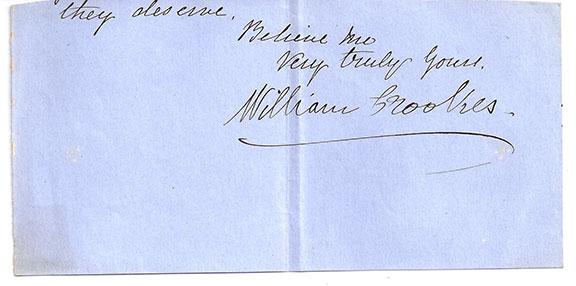 they deserve.
Believe me
Very truly yours.
William Crookes.